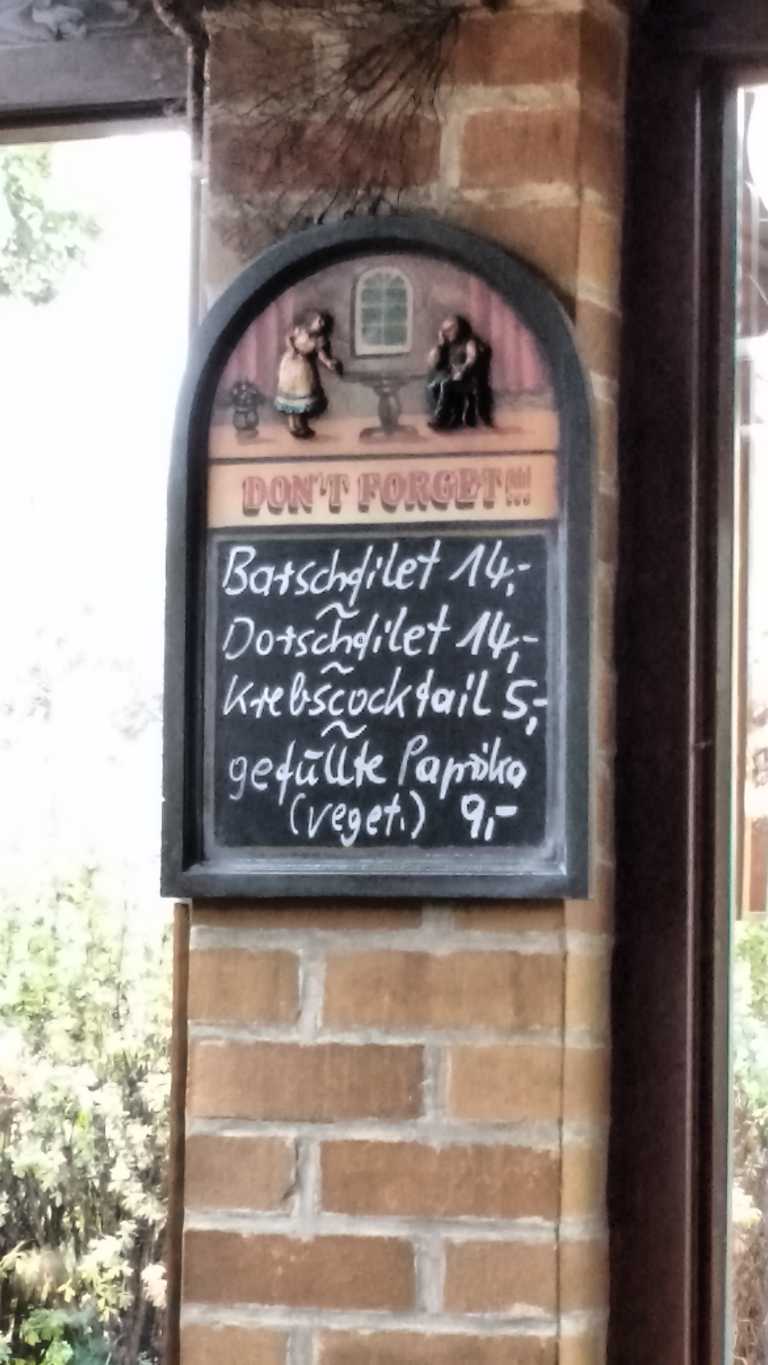 DON'T FORGET!!!
Barschfilet 14,-
~
Dorschfilet 14,-
~
Krebscocktail 5,-
~
gefüllte Paprika
(veget.) 9,-